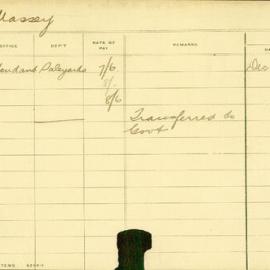 Massey
OFFICE DEP'T RATE OF PAY REMARKS
and Saleyards 7/6 Dec
8/6
Transferred to
Govt